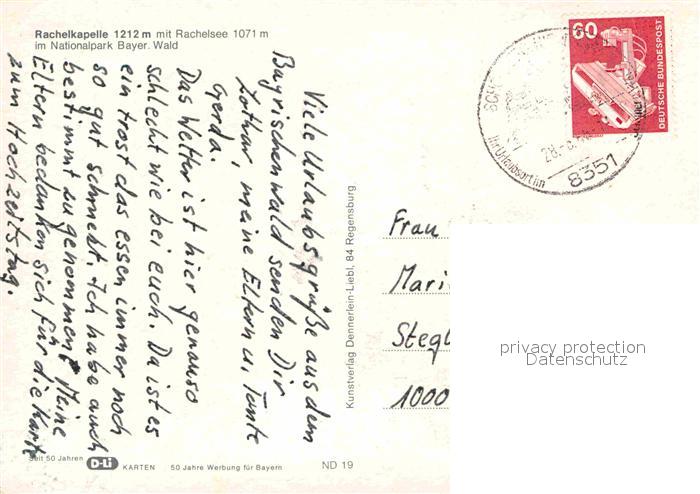 Rachelkapelle 1212 m mit Rachelsee 1071 m
im Nationalpark Bayer. Wald
Viele Urlaubsgrüße aus dem
Bayrischen wald senden Dir
Lothar, meine Eltern u. Tante
Gerda.
Das Wetter ist hier genauso
schlecht wie bei euch. Da ist es
ein trost das essen immer noch
so gut schmekt. Ich habe auch
bestimmt zu genommen. Meine
Eltern bedanken sich für die Karte
zum Hochzeitstag.
Seit 50 Jahren
D-Li KARTEN 50 Jahre Werbung für Bayern ND 19
Kunstverlag Dennerlein-Liebl, 84 Regensburg
60
DEUTSCHE BUNDESPOST
Ihr Urlaubsort im
8351
Frau
Mari
Stegl
1000
privacy protection
Datenschutz